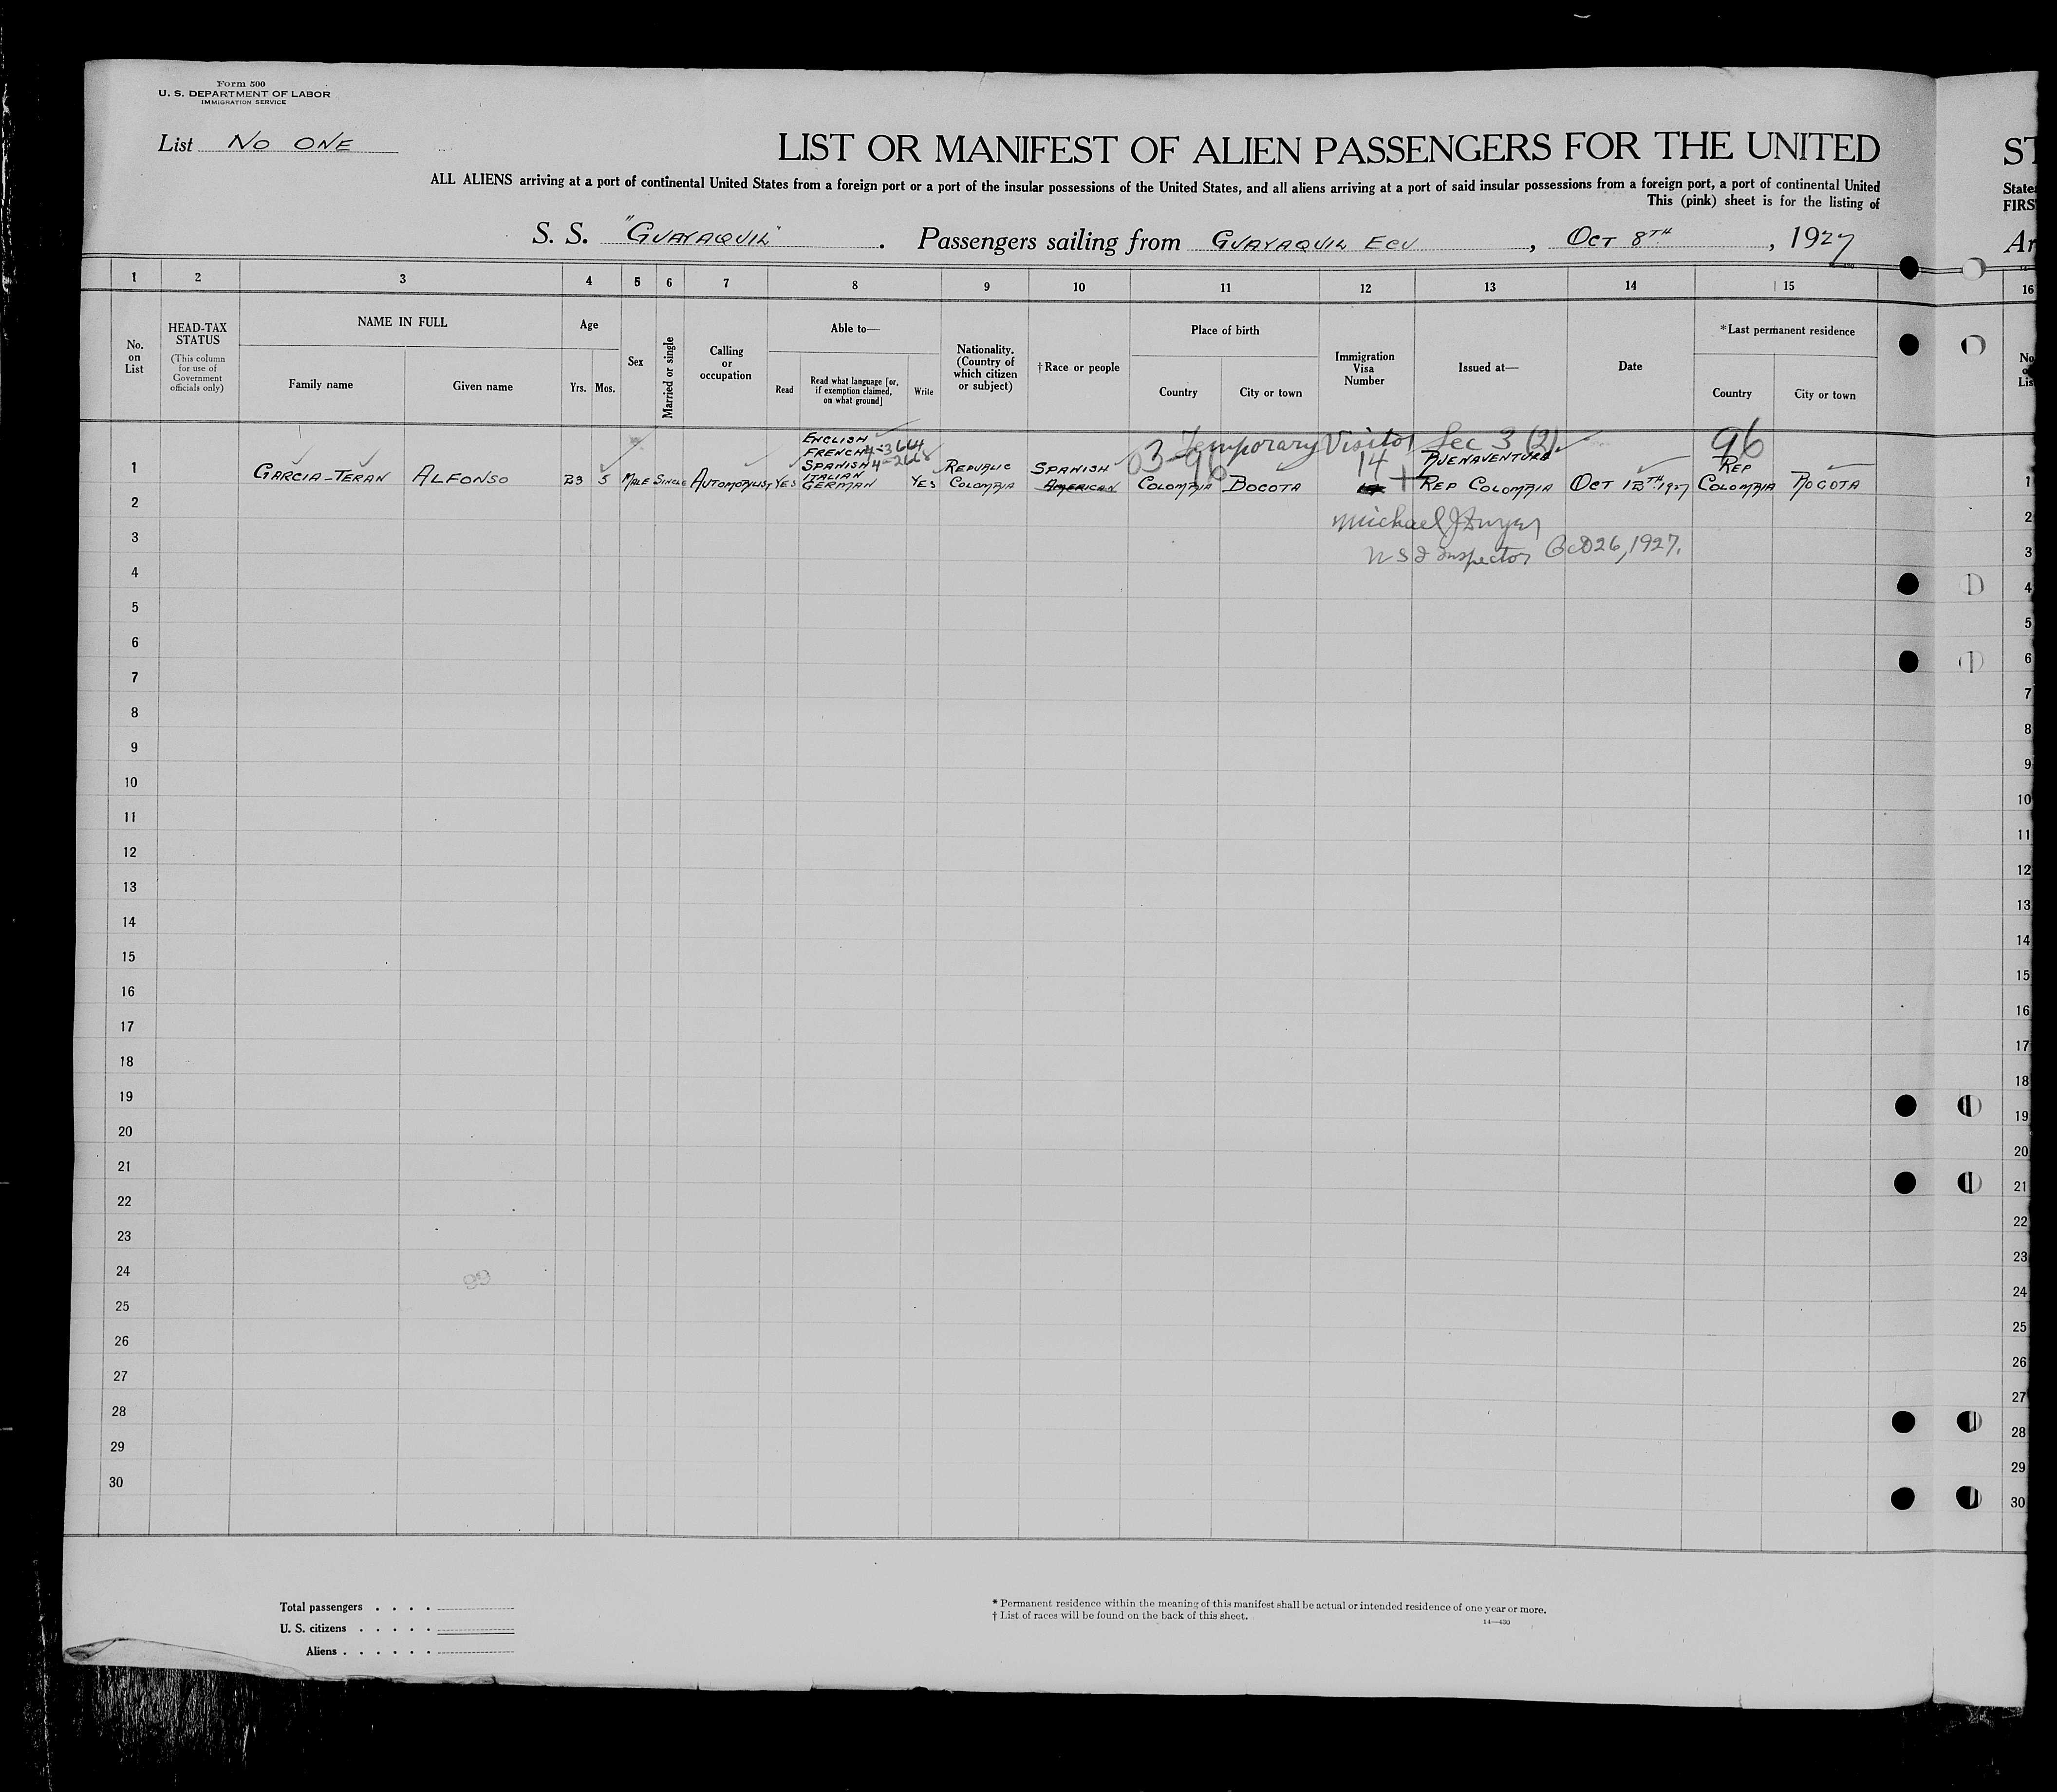 Form 500
U. S. DEPARTMENT OF LABOR
IMMIGRATION SERVICE
List No ONE
LIST OR MANIFEST OF ALIEN PASSENGERS FOR THE UNITED ST
ALL ALIENS arriving at a port of continental United States from a foreign port or a port of the insular possessions of the United States, and all aliens arriving at a port of said insular possessions from a foreign port, a port of continental United State
This (pink) sheet is for the listing of FIRS
S. S. "GUAYAQUIL". Passengers sailing from GUAYAQUIL ECU, OCT 8TH, 1927 Ar
1 2 3 4 5 6 7 8 9 10 11 12 13 14 15 16
No. on List
HEAD-TAX STATUS
(This column for use of Government officials only)
NAME IN FULL
Family name Given name
Age
Yrs. Mos.
Sex
Married or single
Calling or occupation
Able to—
Read
Read what language [or, if exemption claimed, on what ground]
Write
Nationality. (Country of which citizen or subject)
†Race or people
Place of birth
Country City or town
Immigration Visa Number
Issued at—
Date
*Last permanent residence
Country City or town
Temporary Visitor Sec 3 (2)
96
ENGLISH
FRENCH
SPANISH
ITALIAN
GERMAN
1 GARCIA-TERAN ALFONSO 23 5 MALE SINGLE AUTOMOBILIST YES YES REPUBLIC COLOMBIA SPANISH AMERICAN COLOMBIA BOGOTA 14 BUENAVENTURA REP COLOMBIA OCT 13TH 1927 REP COLOMBIA BOGOTA 1
2 2
Michael J Dwyer
3 3
U S I Inspector Oct 26, 1927.
4 4
5 5
6 6
7 7
8 8
9 9
10 10
11 11
12 12
13 13
14 14
15 15
16 16
17 17
18 18
19 19
20 20
21 21
22 22
23 23
24 99 24
25 25
26 26
27 27
28 28
29 29
30 30
Total passengers . . . .
U. S. citizens . . . . .
Aliens . . . . . .
* Permanent residence within the meaning of this manifest shall be actual or intended residence of one year or more.
† List of races will be found on the back of this sheet.
14—430